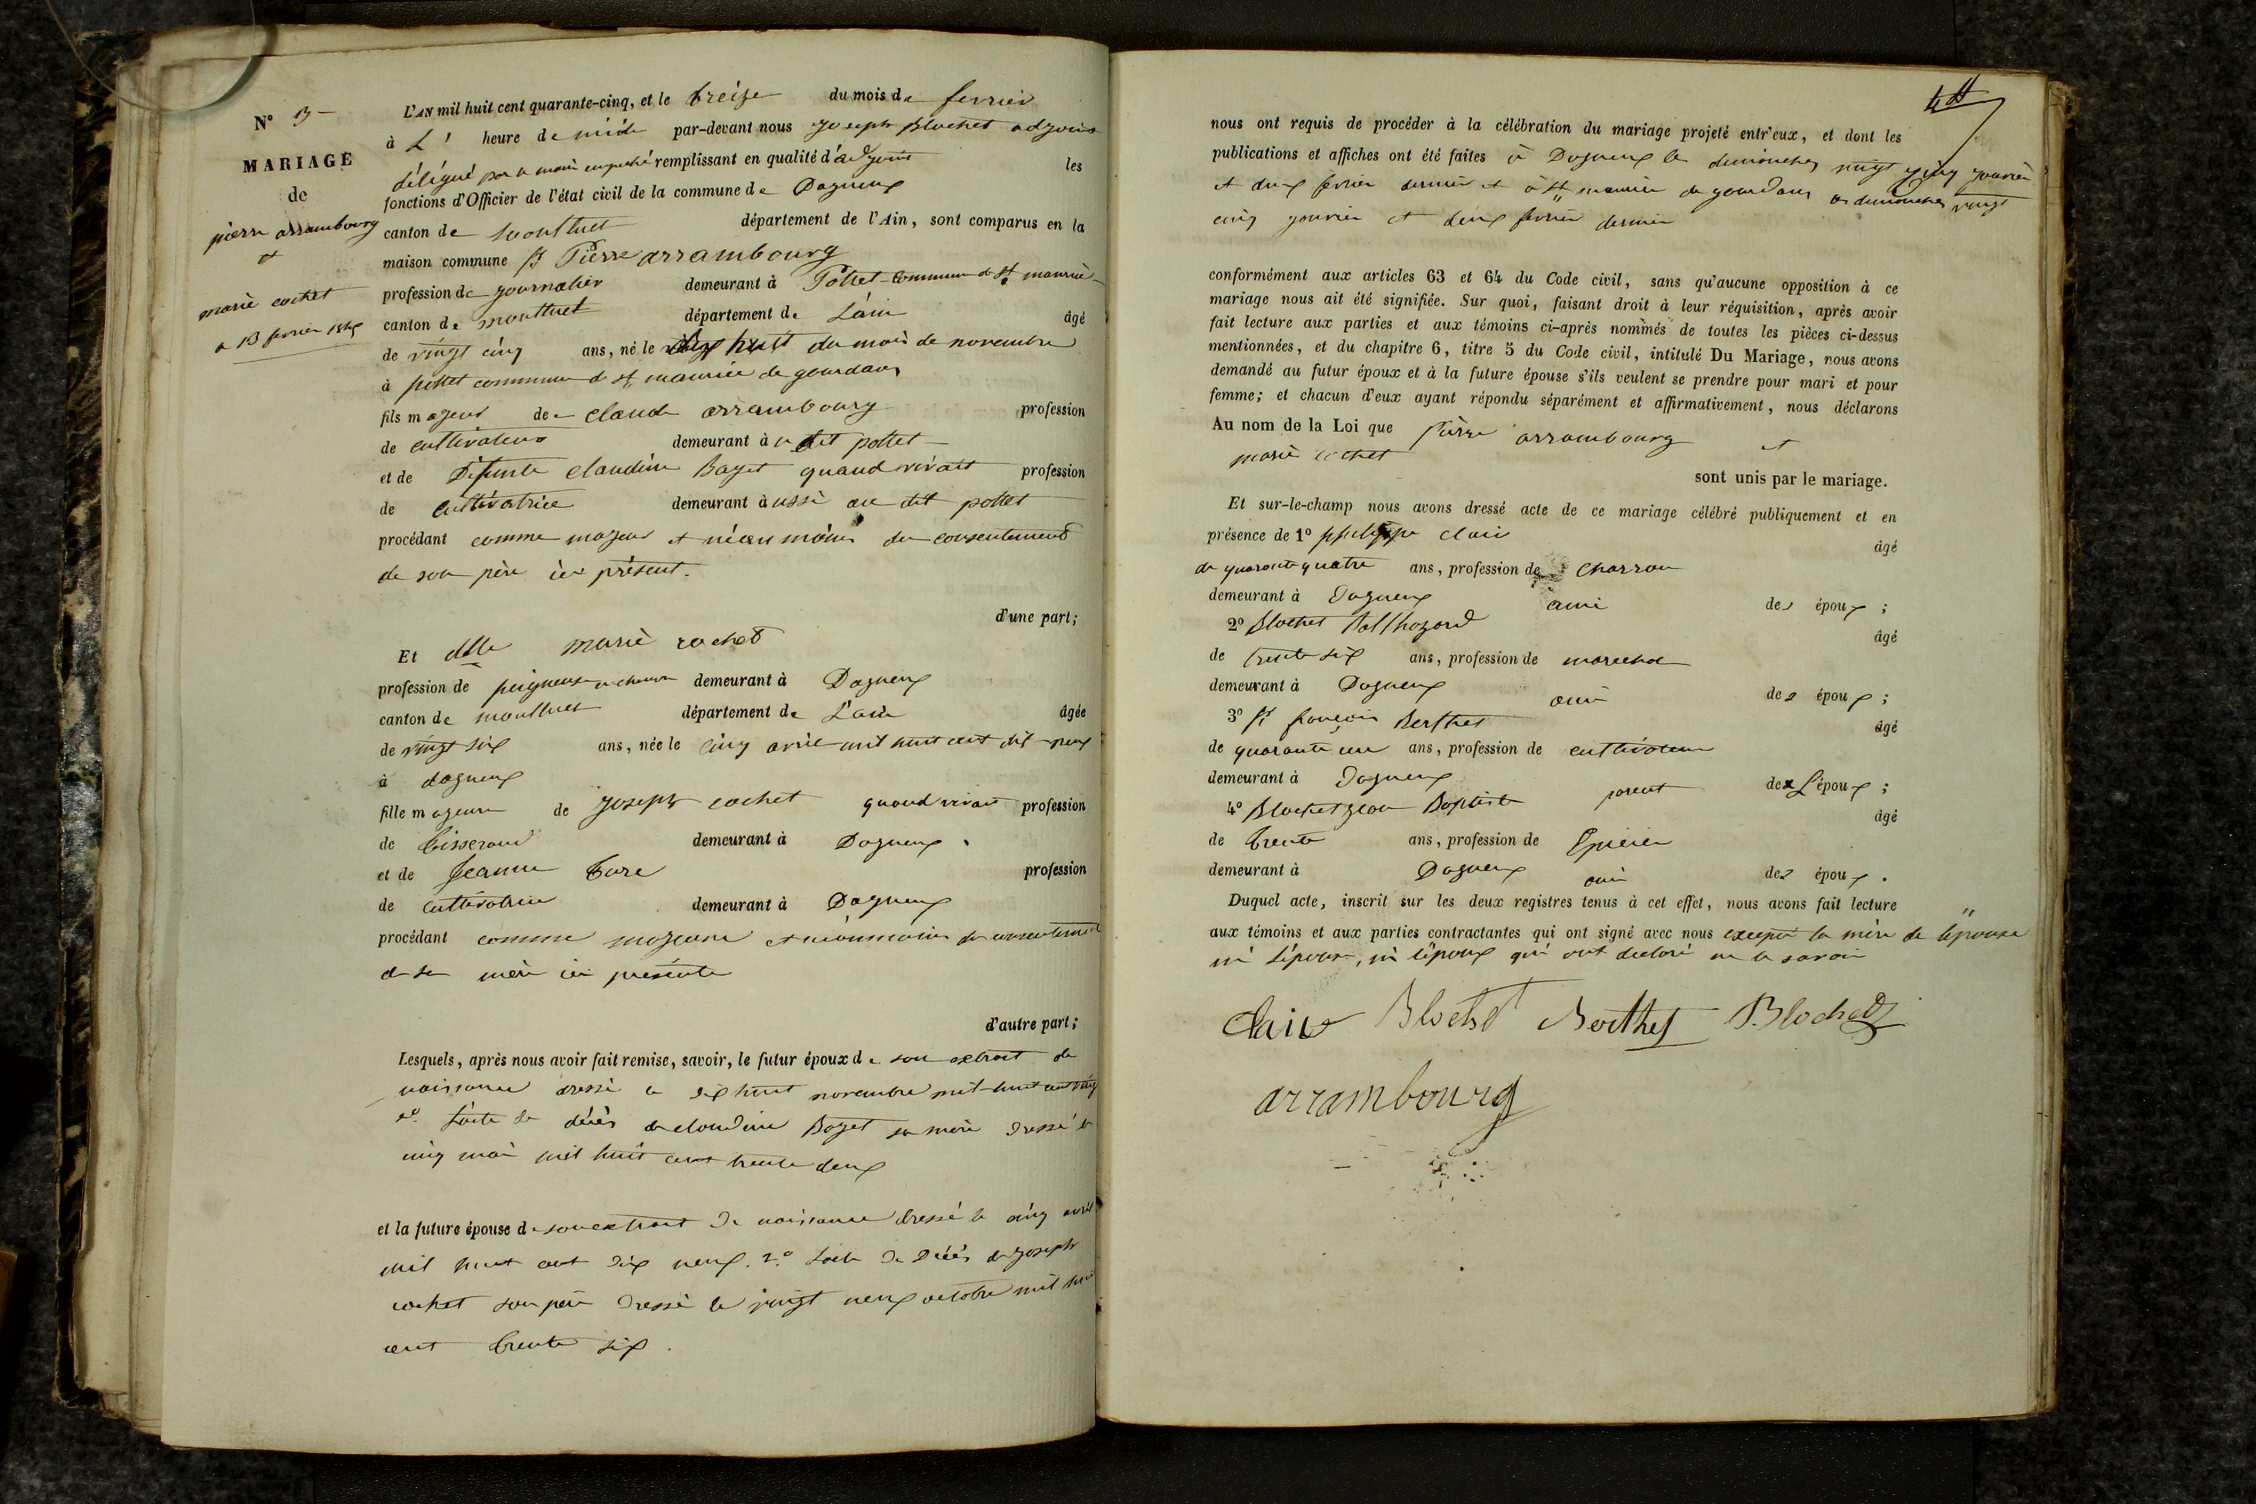 N° 3
MARIAGE
de
pierre arrambourg
et
marie cochet
a 13 fevrier 1845
L'AN mil huit cent quarante-cinq, et le treize du mois de fevrier
à L' heure de midi par-devant nous Joseph Blochet adjoint
délégué par le maire empeché remplissant en qualité d'adjoint les
fonctions d'Officier de l'état civil de la commune de Dagneux
canton de Montluel département de l'Ain, sont comparus en la
maison commune Sr Pierre arrambourg
profession de journalier demeurant à Pollet commune de St maurice
canton de montluel département de L'ain âgé
de vingt cinq ans, né le dix huit du mois de novembre
à pollet commune de St maurice de gourdans
fils majeur de claude arrambourg profession
de cultivateur demeurant à u dit pollet
et de Défunte claudine Bayet quand vivait profession
de cultivatrice demeurant à ussi au dit pollet
procédant comme majeur et néanmoins du consentement
de son père ici présent.
d'une part;
Et dlle marie cochet
profession de peigneuse de chanvre demeurant à Dagneux
canton de montluel département de L'ain âgée
de vingt six ans, née le cinq avril mil huit cent dix neuf
à dagneux
fille majeure de Joseph cochet quand vivait profession
de tisserand demeurant à Dagneux
et de Jeanne profession
de cultivatrice demeurant à Dagneux
procédant comme majeure et néanmoins du consentement
de sa mère ici présente
d'autre part;
Lesquels, après nous avoir fait remise, savoir, le futur époux de son extrait de
naissance dressé le dix huit novembre mil huit cent vingt
2° L'acte de décès de claudine Bayet sa mère dressé le
cinq mai mil huit cent trente deux
et la future épouse de son extrait de naissance dressé le cinq avril
mil huit cent dix neuf. 2° L'acte de Décès de Joseph
cochet son père dressé le vingt neuf octobre mil huit
cent trente six.
nous ont requis de procéder à la célébration du mariage projeté entr'eux, et dont les
publications et affiches ont été faites à Dagneux les dimanches vingt cinq janvier
et deux fevrier dernier et à St maurice de gourdans les dimanches vingt
cinq janvier et deux fevrier dernier
conformément aux articles 63 et 64 du Code civil, sans qu'aucune opposition à ce
mariage nous ait été signifiée. Sur quoi, faisant droit à leur réquisition, après avoir
fait lecture aux parties et aux témoins ci-après nommés de toutes les pièces ci-dessus
mentionnées, et du chapitre 6, titre 5 du Code civil, intitulé Du Mariage, nous avons
demandé au futur époux et à la future épouse s'ils veulent se prendre pour mari et pour
femme; et chacun d'eux ayant répondu séparément et affirmativement, nous déclarons
Au nom de la Loi que Pierre arrambourg et
marie cochet
sont unis par le mariage.
Et sur-le-champ nous avons dressé acte de ce mariage célébré publiquement et en
présence de 1° philippe clair âgé
de quarante quatre ans, profession de charron
demeurant à Dagneux ami des époux;
2° Blochet Balthazard âgé
de trente six ans, profession de marechal
demeurant à Dagneux ami des époux;
3° Sr françois Berthet âgé
de quarante un ans, profession de cultivateur
demeurant à Dagneux parent de L'époux;
4° Blochet Jean Baptiste âgé
de trente ans, profession de Epicier
demeurant à Dagneux ami des époux.
Duquel acte, inscrit sur les deux registres tenus à cet effet, nous avons fait lecture
aux témoins et aux parties contractantes qui ont signé avec nous excepté la mère de l'épouse
ni l'épouse, ni l'époux qui ont declaré ne le savoir
Clair Blochet Berthet J. Blochet
arrambourg